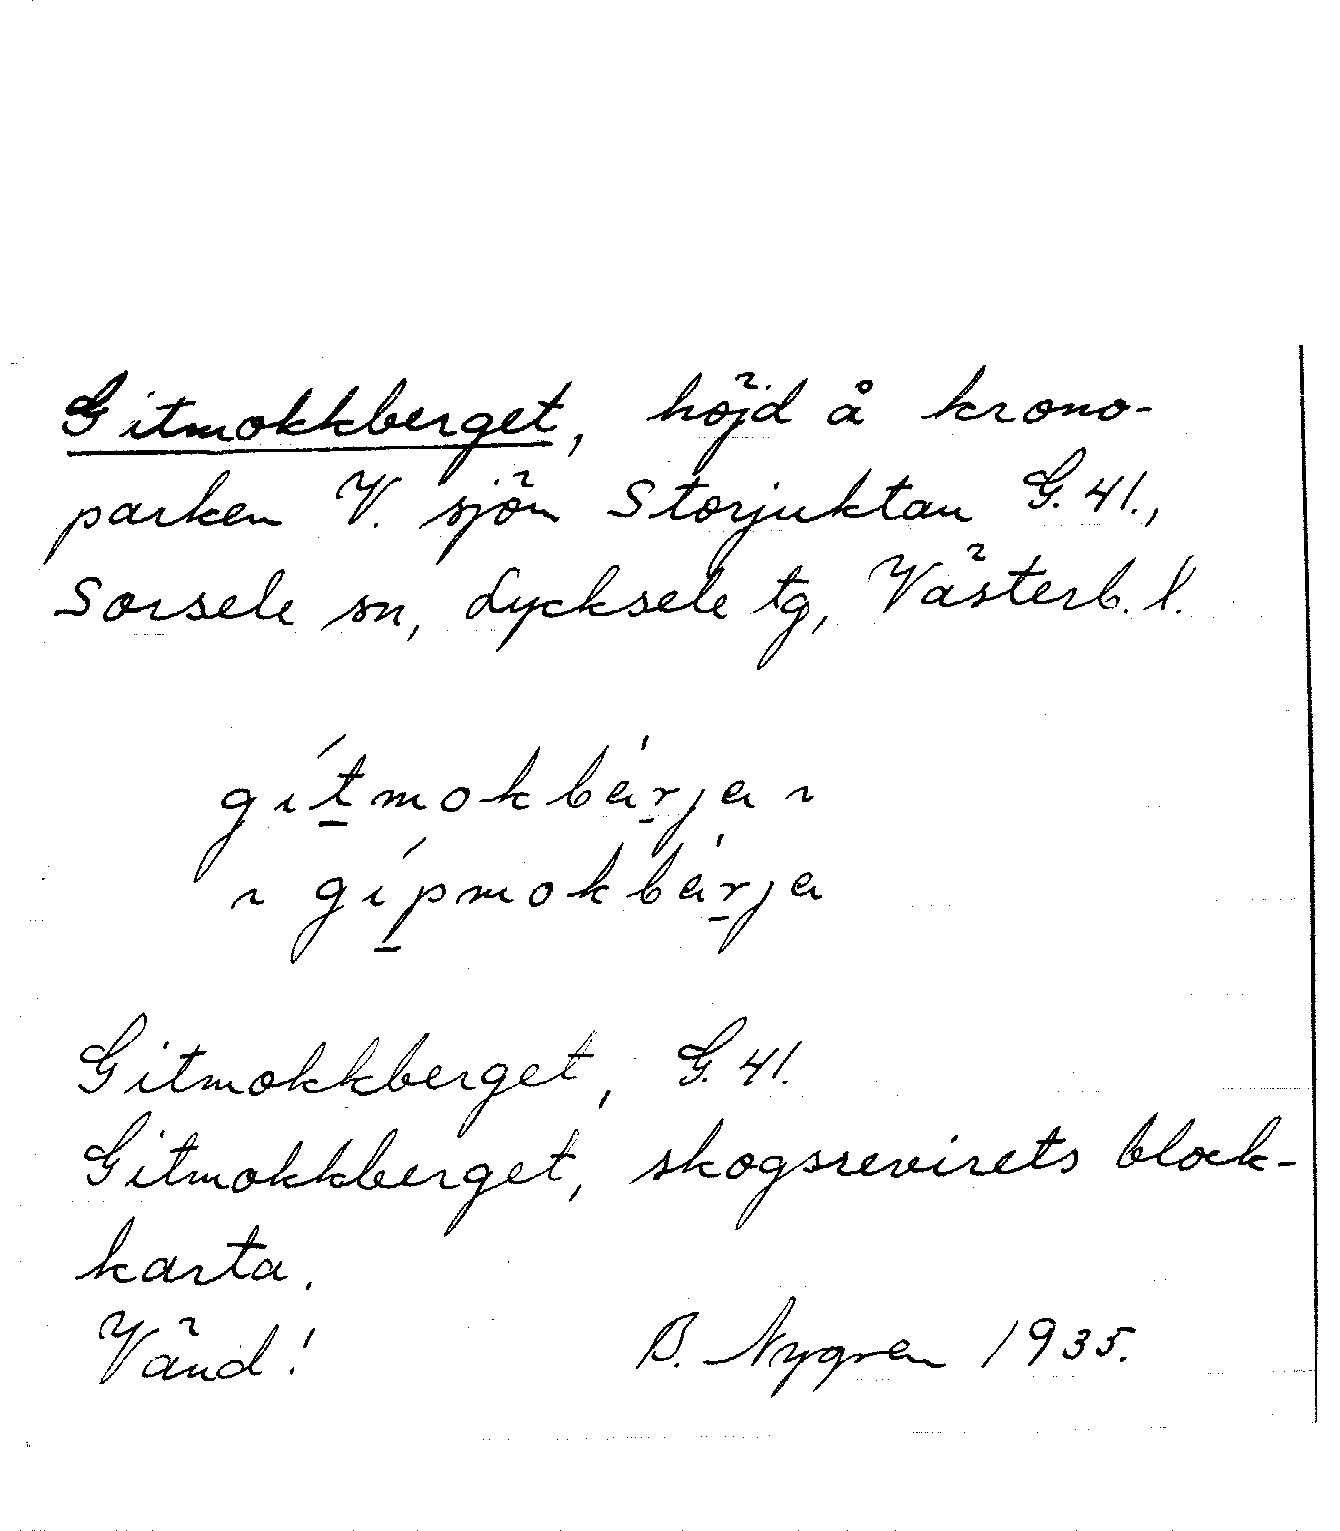 Gitmokkberget, höjd å krono-
parken V. sjön Storjuktan G. 41.,
Sorsele sn, Lycksele tg, Västerb. l.
gítmokbárja ~
~ gípmokbárja
Gitmokkberget, G. 41.
Gitmokkberget, skogsrevirets block-
karta.
Vänd!
B. Nygren 1935.